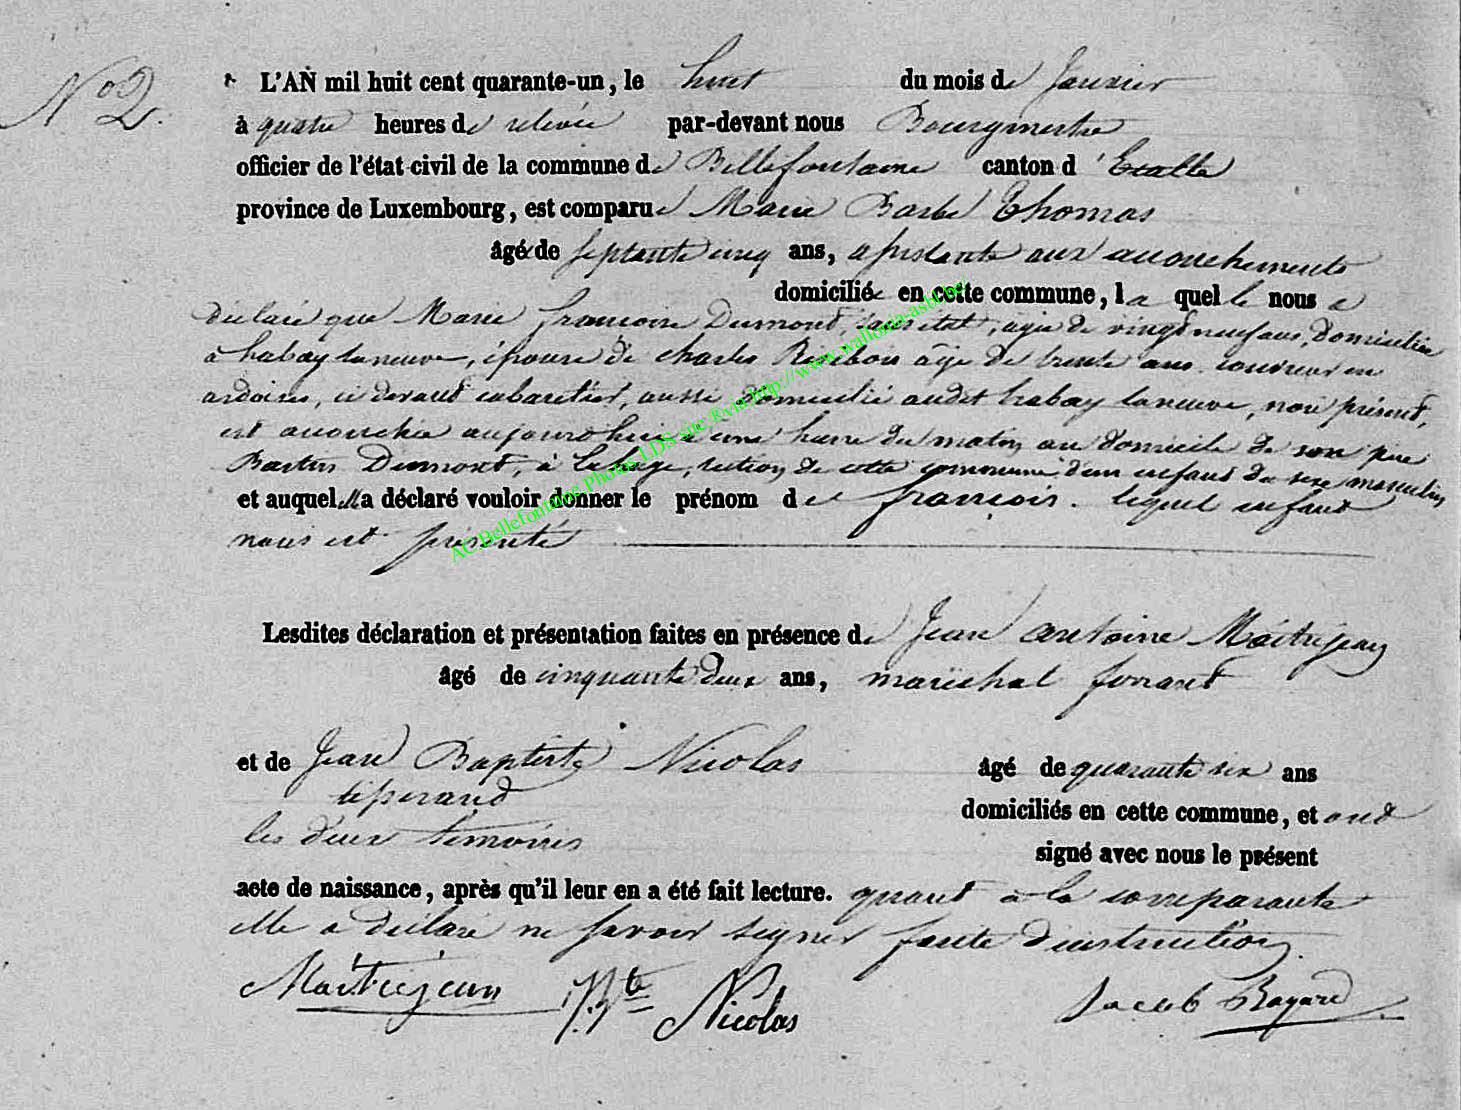 N° 2.
L'AN mil huit cent quarante-un, le huit du mois de Janvier
à quatre heures de relevée par-devant nous Bourgmestre
officier de l'état civil de la commune de Bellefontaine canton d'Etalle
province de Luxembourg, est comparue Marie Barbe Thomas
âgée de septante cinq ans, assistante aux accouchements
domiciliée en cette commune, laquelle nous a
déclaré que Marie françoise Dumont, sans état, agée de vingt neuf ans, Domiciliée
à habay laneuve, épouse de charles âgé de trente ans couvreur en
ardoises, ci devant cabaretier, aussi domicilié audit habay laneuve, non présent,
est accouchée aujourdhui à une heure du matin au domicile de son père
Dumont, à lahage, section de cette commune d'un enfant du sexe masculin
et auquel Ella a déclaré vouloir donner le prénom de françois. lequel enfant
nous est présenté
Lesdites déclaration et présentation faites en présence de Jean antoine Maitrejean
âgé de cinquante deux ans, maréchal ferrant
et de Jean Baptiste Nicolas âgé de quarante six ans
tisserand domiciliés en cette commune, et ont
les deux témoins signé avec nous le présent
acte de naissance, après qu'il leur en a été fait lecture. quant à la comparante
elle a déclaré ne savoir signer faute d'instruction
Maitrejean J.Bte Nicolas Jacob Bayard
AC Bellefontaine, Photos LDS sur, & via http://www.wallonia-asbl.be/